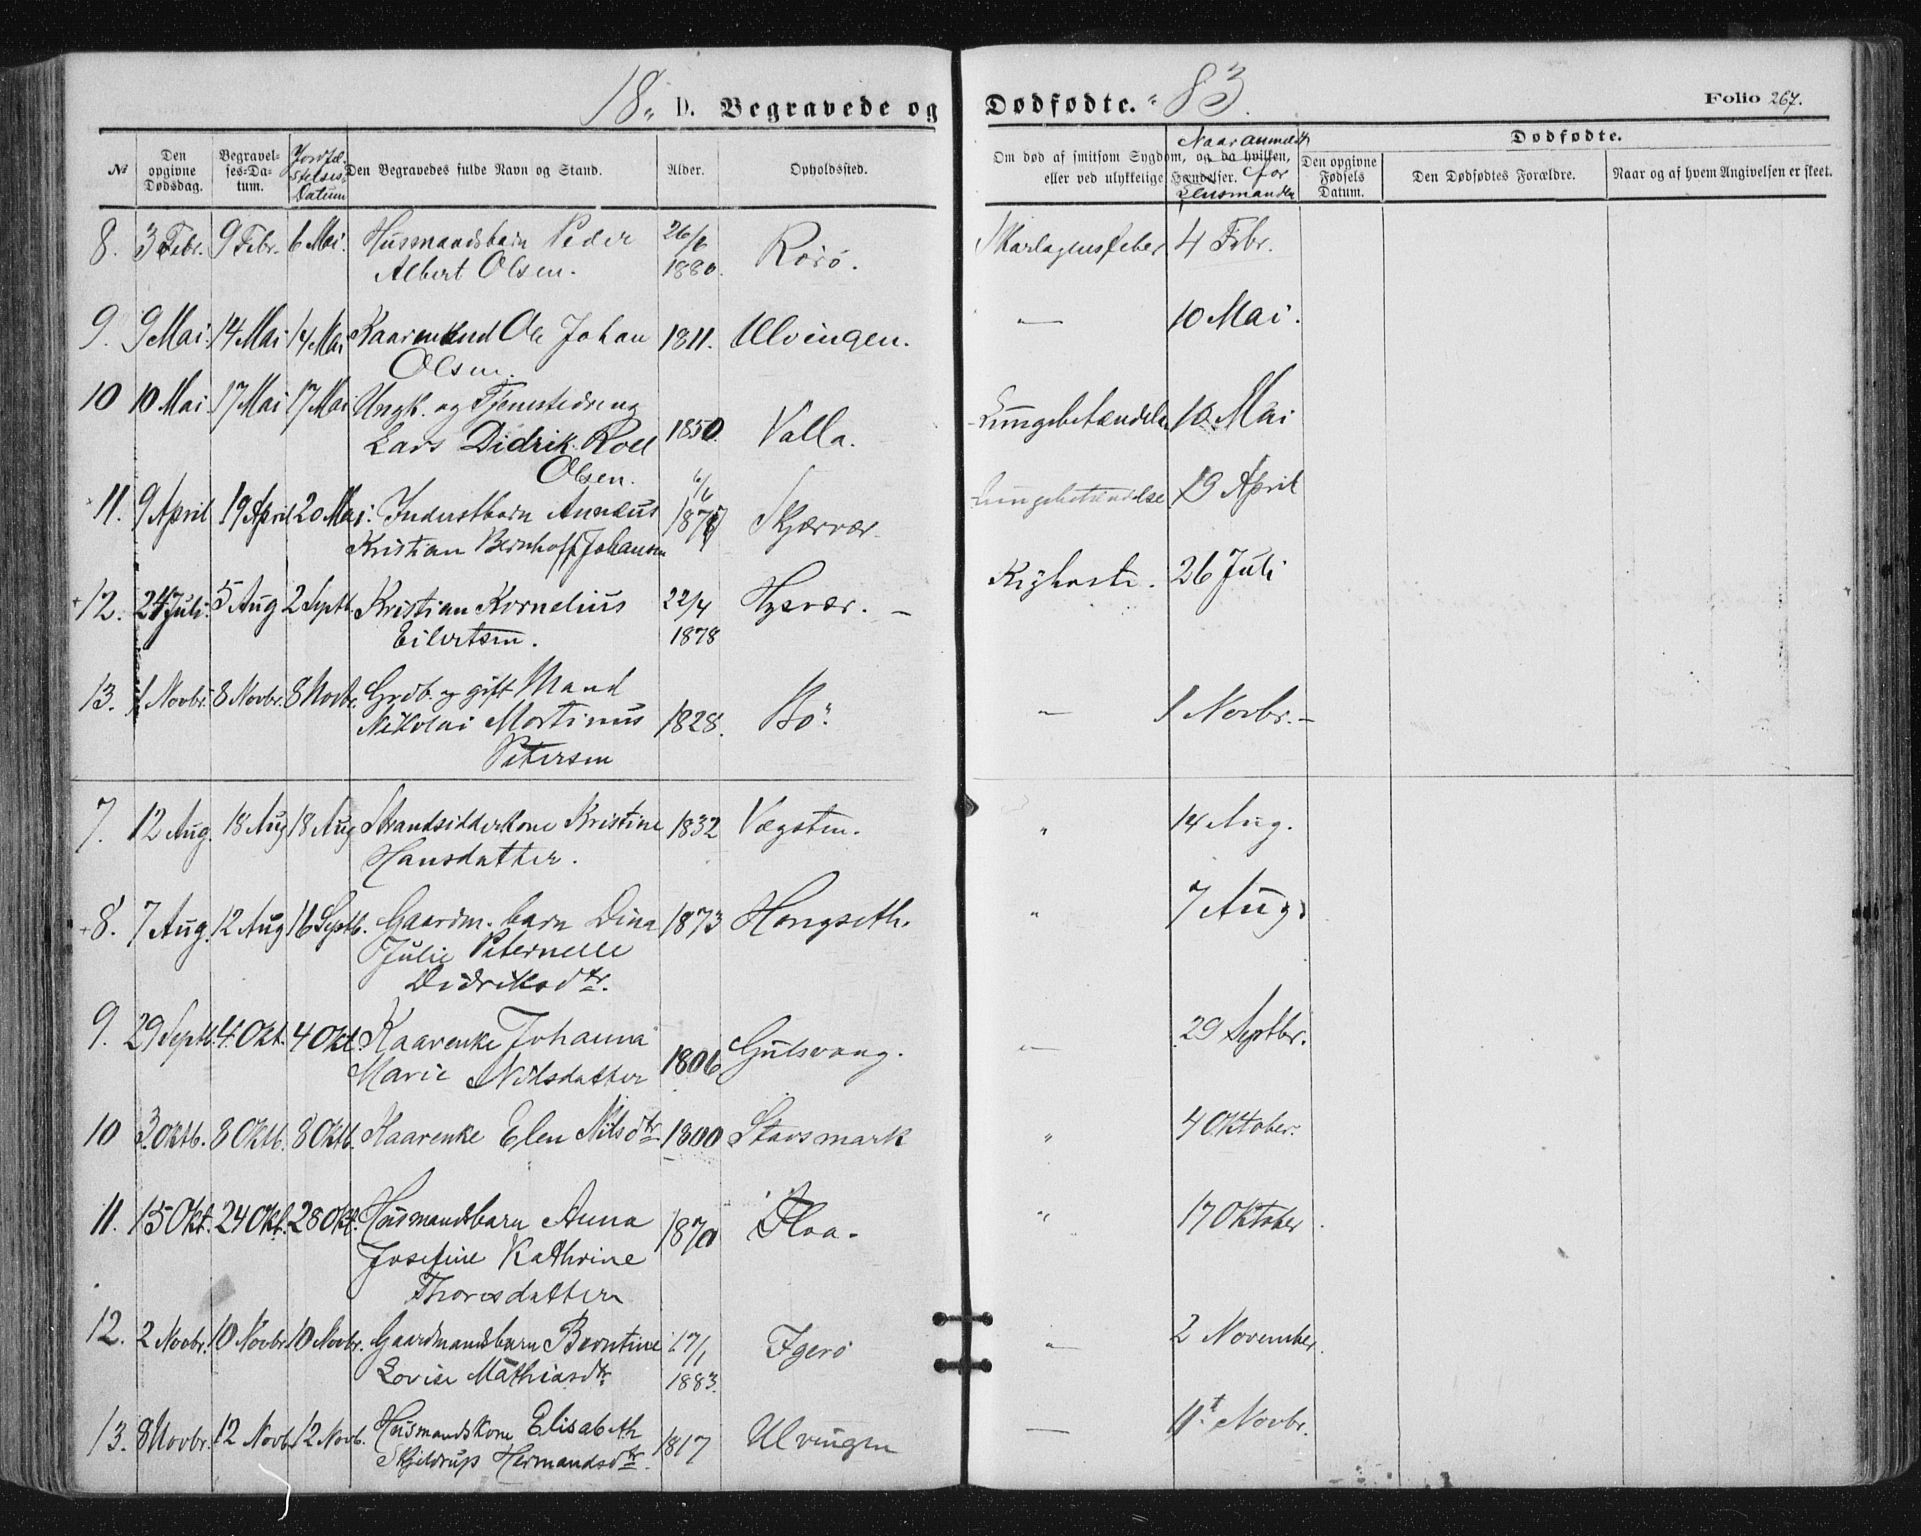 18 " D. Begravede og Dødfødte. " 83.
Folio 267.
№ Den opgivne Dødsdag. Begravelses-Datum. Jordfæstelses-Datum Den Begravedes fulde Navn og Stand. Alder. Opholdssted.
Om død af smitsom Sygdom, og da hvilken, eller ved ulykkelige Hændelser. Naar anmeldt for Lensmanden
Dødfødte.
Den opgivne Fødsels Datum. Den Dødfødtes Forældre. Naar og af hvem Angivelsen er skeet.
8. 3 Febr. 9 Febr. 6 Mai. Husmandsbarn Peder 26/6 Rörö. Skarlagensfeber 4 Febr.
Albert Olsen. 1880.
9. 9 Mai. 14 Mai 14 Mai Kaarmand Ole Johan 1811. Ulvingen. — 10 Mai.
Olsen.
10 10 Mai. 17 Mai 17 Mai Ungk. og Tjenestedreng Lungebetændelse 10 Mai
Lars Didrik Roll 1850. Valla.
Olsen.
11. 9 April 19 April 20 Mai. Inderstbarn Annæus 6/6 Lungebetændelse 19 April
Kristian Bernhoff Johansen Skjærvær.
12. 24 Juli. 5 Aug 2 Septb. Kristian Kornelius 22/4 Hysvær. — Kighoste. 26 Juli
Eilertsen. 1878
13. 1 Novbr. 8 Novbr. 8 Novbr. Grdb. og gift Mand
Nikolai Mortinus 1828. Bö. — 1 Novbr. —
Petersen
7. 12 Aug. 18 Aug 18 Aug Strandsidderkone Kristine 1832 Vægsten. " 14 Aug.
Hansdatter.
8. 7 Aug. 12 Aug 16 Septb. Gaardm. barn Dina 1873 Hongseth. " 7 Aug.
Julie Peternelle
Didriksdtr.
9. 29 Septb. 4 Okt. 4 Okt. Kaarenke Johanna 29 Septbr.
Marie Nilsdatter 1806 Gulsvaag. —
10 3 Oktb. 8 Oktb. 8 Oktb. Kaarenke Elen Nilsdtr 1800 Stavsmark " 4 Oktober.
11. 15 Okt. 24 Okt. 28 Okt. Husmandsbarn Anna 1870 Floa. " 17 Oktober.
Josefine Kathrine
Thoresdatter
12. 2 Novbr. 10 Novbr. 10 Novbr. Gaardmandsbarn Berntine 17/1 Igerö " 2 November.
Lovise Mathiasdtr 1883.
13. 8 Novbr. 12 Novb. 12 Novb. Husmandskone Elisabeth 1817 Ulvingen — 11t Novbr.
Skjeldrup Hermandsdtr.